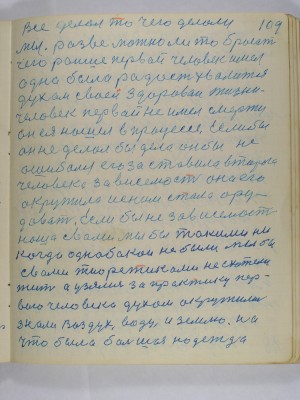 109
Все делал то чего делали
мы. разве можно ли то бросат
чего раньше первай человек имел
одно была радост хвалится
духом своей здоровай жизни.
человек первай не имел смерти
он ея нашел в процессе, если бы
он не делал бы дела он бы не
ошибался его заставила втарая
человека зависемост она его
окружила и ном стала ору-
доват, Если бы не зависемость
наша свами мы бы такими ни
когда однобакаи не были мы бы
свами теоретиками не схотели
жит а узялис за практику пер-
вого человека духом окружили
знали воздух, воду и землю. на
что была большая надежда